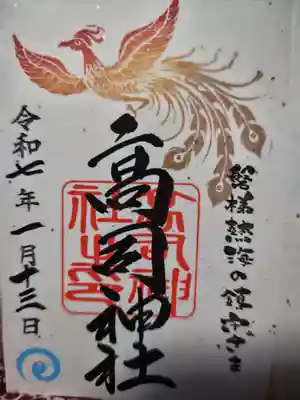 磐梯熱海の鎮守さま
高司神社
令和七年一月十三日